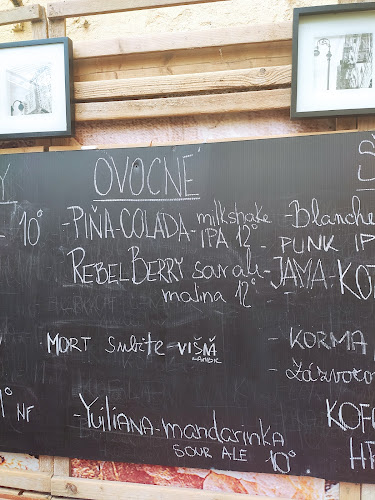 OVOCNÉ
- 10°
-PIŇA-COLADA- milkshake
IPA 12°
REBEL BERRY sour ale
malina 12°
MORT Subite - VIŠŇĚ
LAMBIC
-Yuiliana-mandarinka
SOUR ALE 10°
-Blanche
- PUNK IP
-JAMA-KO
- KORMA
- Zázvoro
KOFO
1° NR